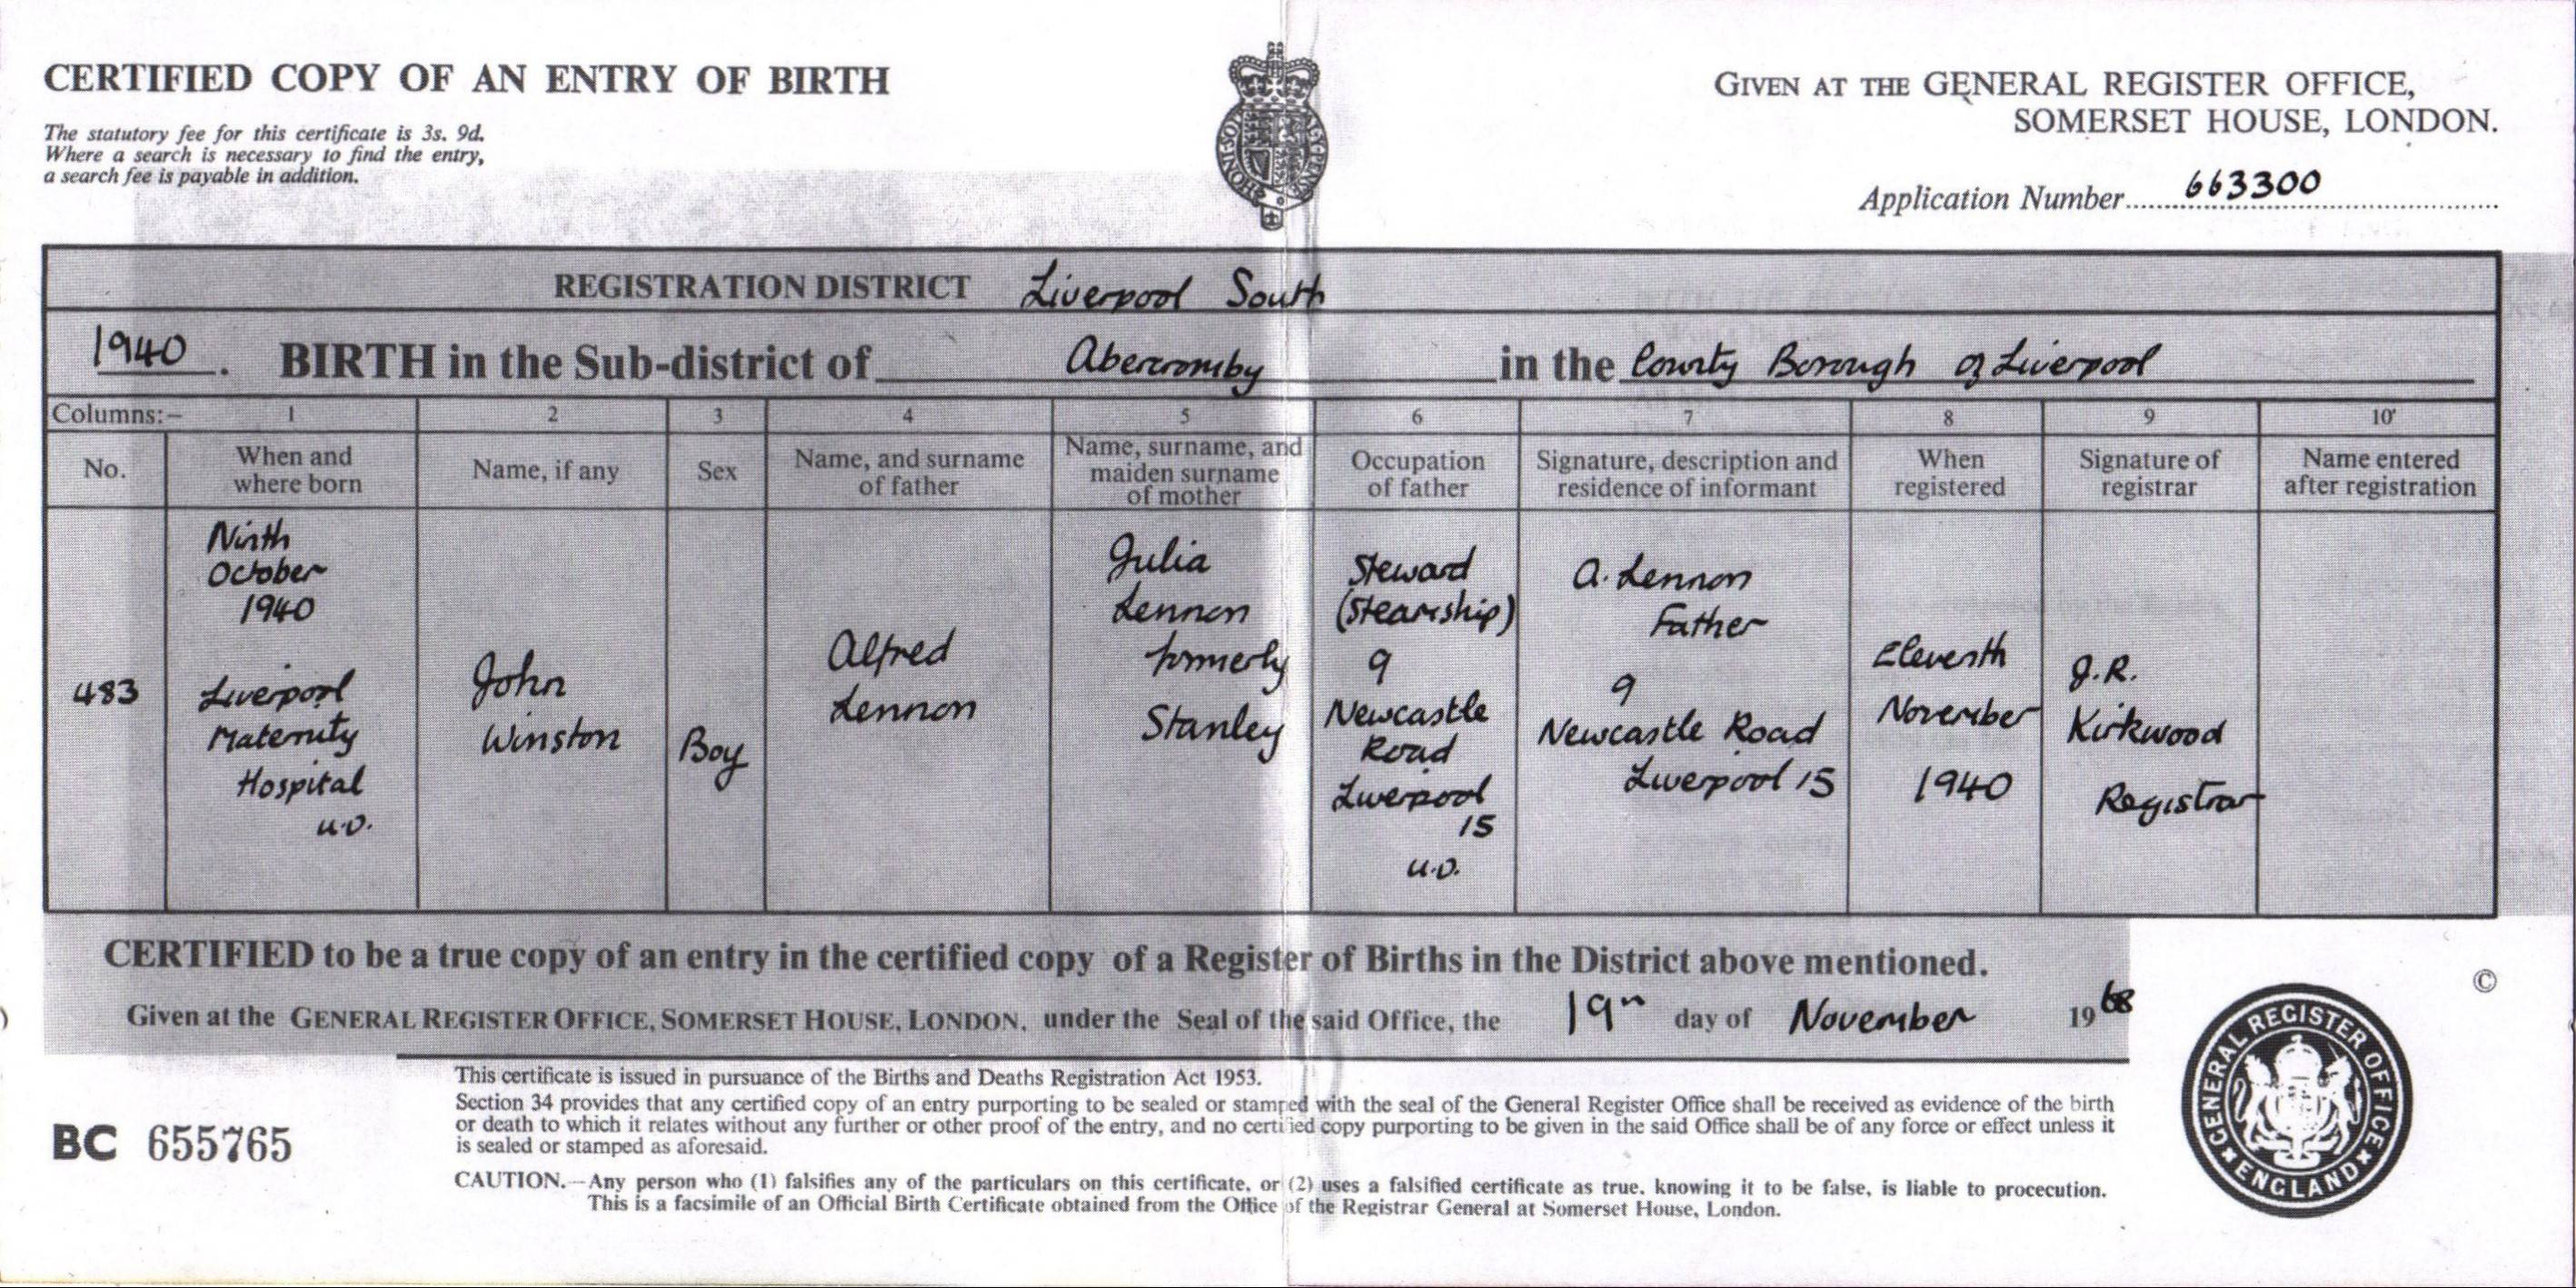 CERTIFIED COPY OF AN ENTRY OF BIRTH
The statutory fee for this certificate is 3s. 9d.
Where a search is necessary to find the entry,
a search fee is payable in addition.
GIVEN AT THE GENERAL REGISTER OFFICE,
SOMERSET HOUSE, LONDON.
Application Number 663300
REGISTRATION DISTRICT Liverpool South
1940. BIRTH in the Sub-district of Abercromby in the County Borough of Liverpool
Columns:- 1 2 3 4 5 6 7 8 9 10
No.
When and
where born
Name, if any
Sex
Name, and surname
of father
Name, surname, and
maiden surname
of mother
Occupation
of father
Signature, description and
residence of informant
When
registered
Signature of
registrar
Name entered
after registration
483
Ninth
October
1940
Liverpool
Maternity
Hospital
U.D.
John
Winston
Boy
Alfred
Lennon
Julia
Lennon
formerly
Stanley
Steward
(Steamship)
9
Newcastle
Road
Liverpool
15
U.D.
A. Lennon
Father
9
Newcastle Road
Liverpool 15
Eleventh
November
1940
J.R.
Kirkwood
Registrar
CERTIFIED to be a true copy of an entry in the certified copy of a Register of Births in the District above mentioned.
Given at the GENERAL REGISTER OFFICE, SOMERSET HOUSE, LONDON, under the Seal of the said Office, the 19th day of November 1968
©
This certificate is issued in pursuance of the Births and Deaths Registration Act 1953.
Section 34 provides that any certified copy of an entry purporting to be sealed or stamped with the seal of the General Register Office shall be received as evidence of the birth
or death to which it relates without any further or other proof of the entry, and no certified copy purporting to be given in the said Office shall be of any force or effect unless it
is sealed or stamped as aforesaid.
BC 655765
CAUTION.—Any person who (1) falsifies any of the particulars on this certificate, or (2) uses a falsified certificate as true, knowing it to be false, is liable to procecution.
This is a facsimile of an Official Birth Certificate obtained from the Office of the Registrar General at Somerset House, London.
GENERAL REGISTER OFFICE
ENGLAND